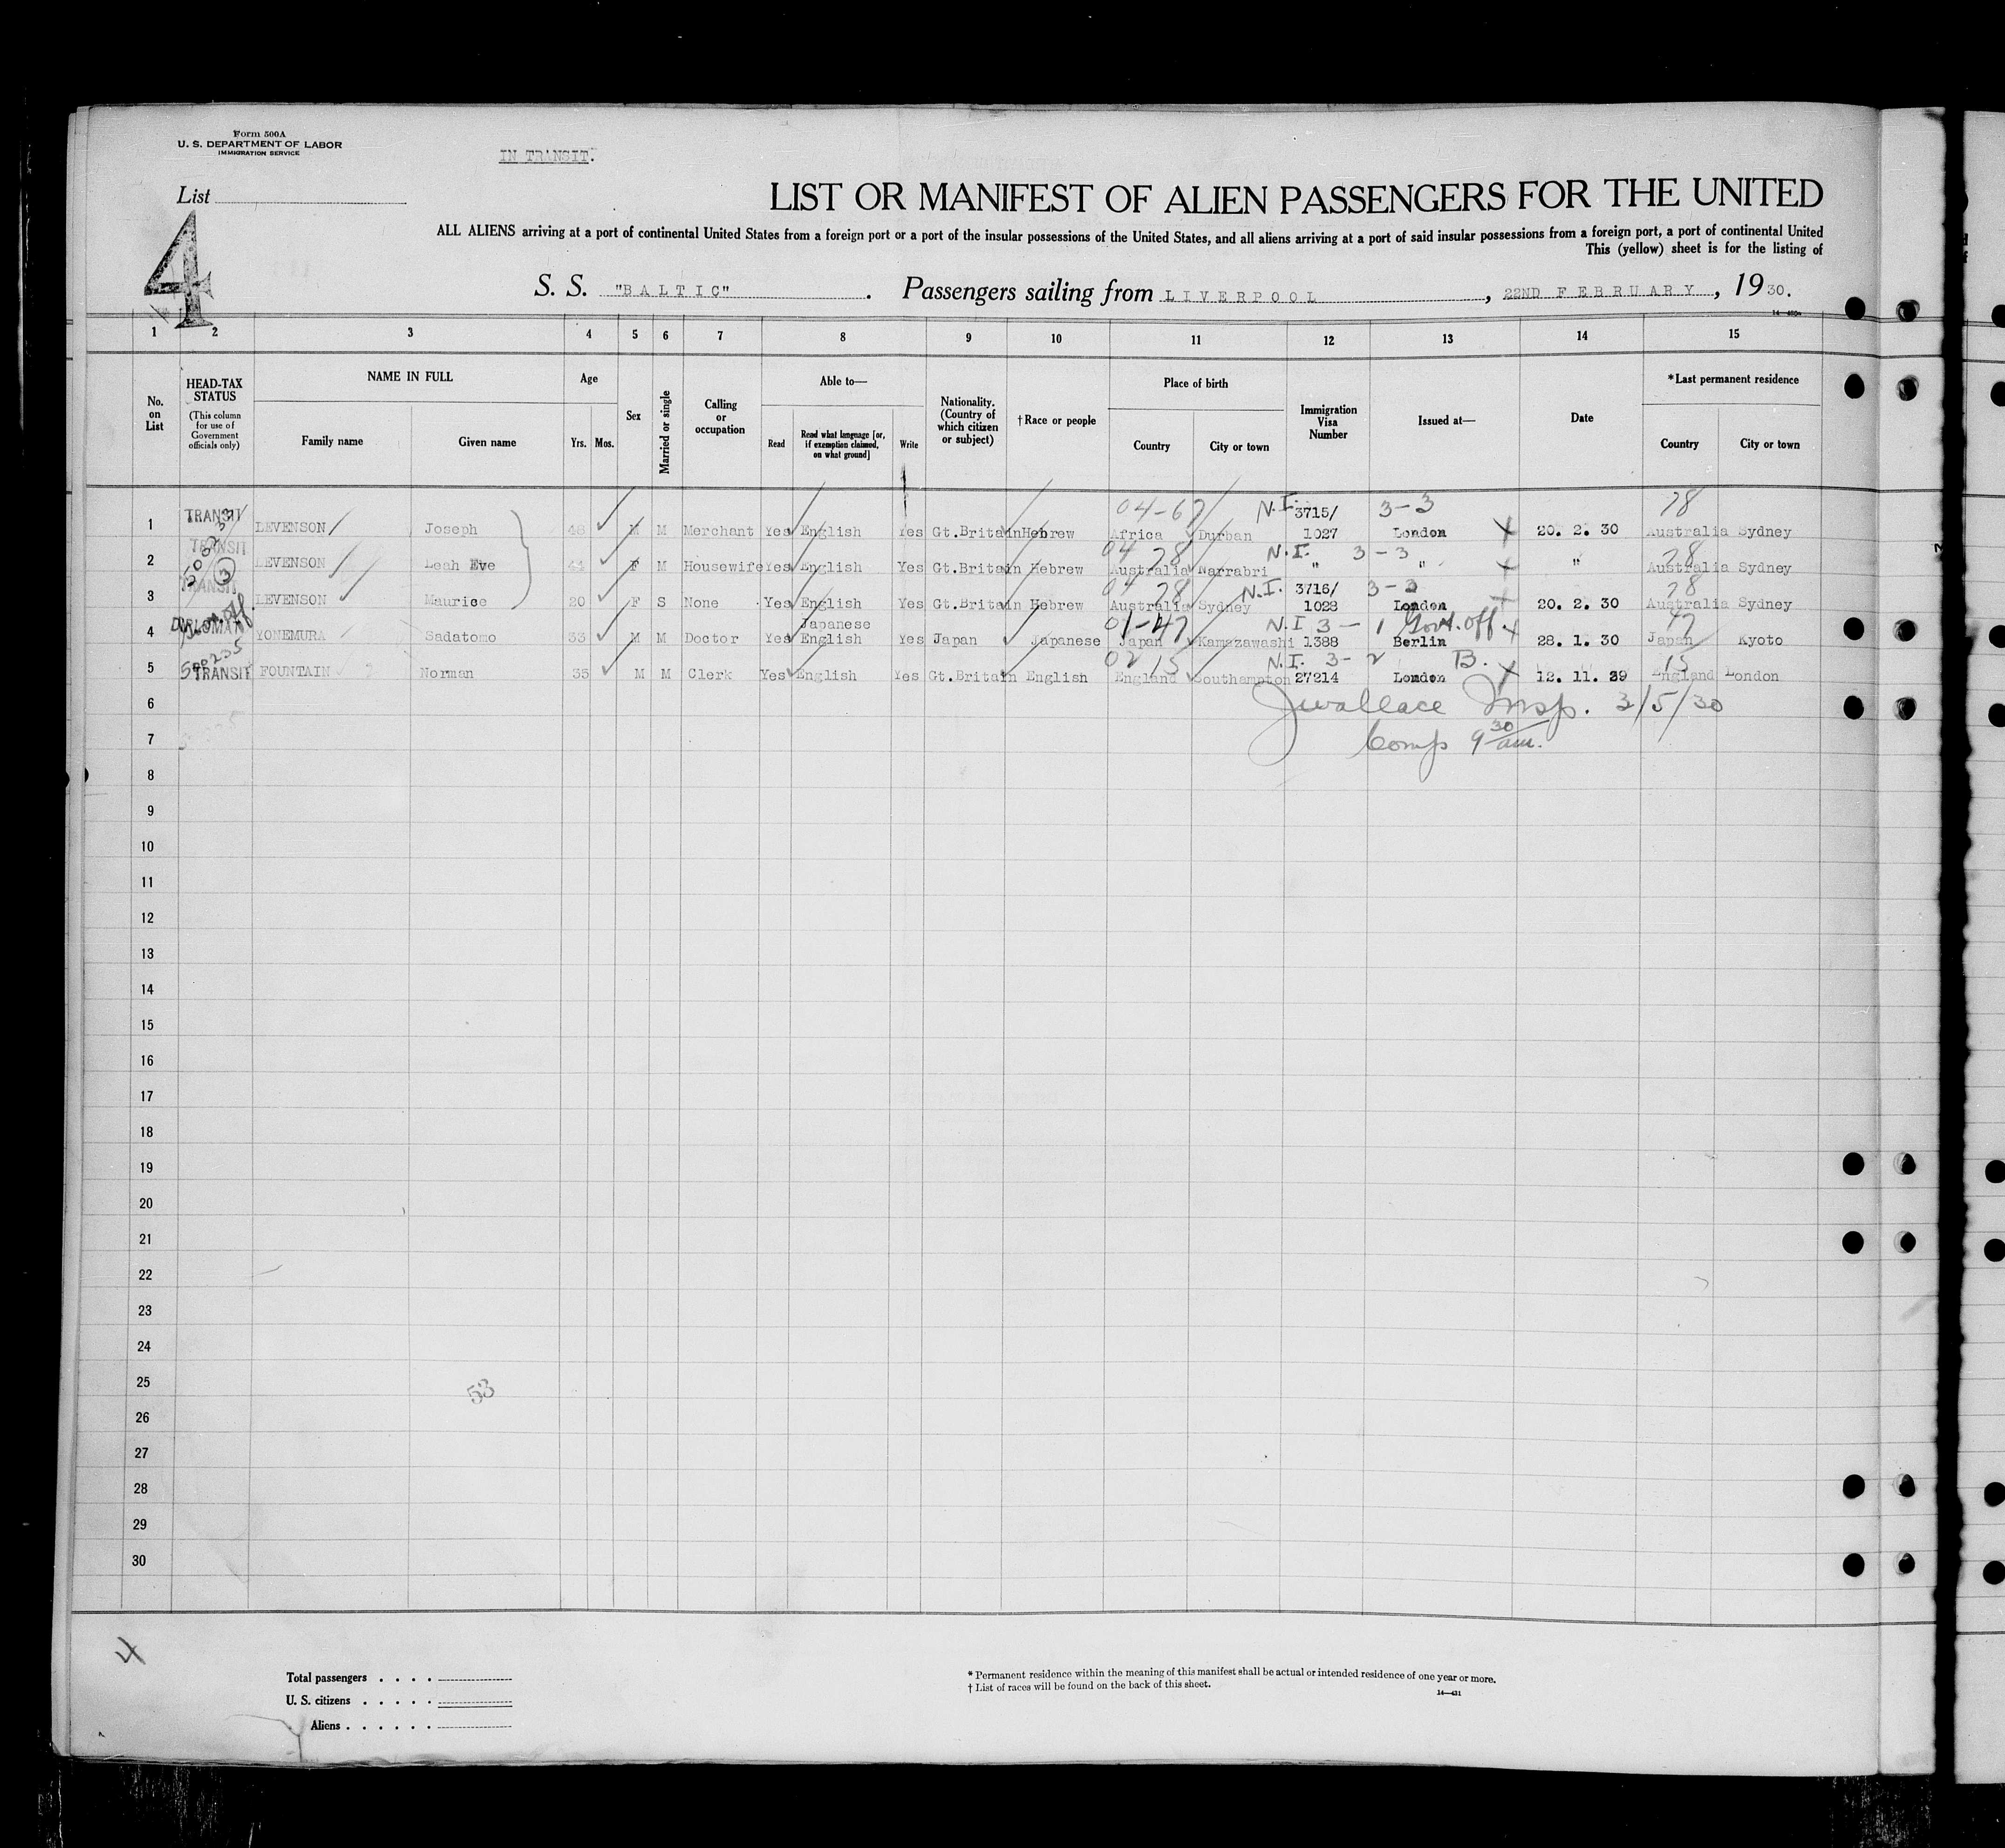 Form 500A
U. S. DEPARTMENT OF LABOR
IMMIGRATION SERVICE
IN TRANSIT.
List
4
LIST OR MANIFEST OF ALIEN PASSENGERS FOR THE UNITED
ALL ALIENS arriving at a port of continental United States from a foreign port or a port of the insular possessions of the United States, and all aliens arriving at a port of said insular possessions from a foreign port, a port of continental United
This (yellow) sheet is for the listing of
S. S. "BALTIC". Passengers sailing from LIVERPOOL, 22ND FEBRUARY, 1930.
1 2 3 4 5 6 7 8 9 10 11 12 13 14 15
No. on List
HEAD-TAX STATUS (This column for use of Government officials only)
NAME IN FULL
Family name Given name
Age
Yrs. Mos.
Sex
Married or single
Calling or occupation
Able to—
Read Read what language [or, if exemption claimed, on what ground] Write
Nationality. (Country of which citizen or subject)
† Race or people
Place of birth
Country City or town
Immigration Visa Number
Issued at—
Date
* Last permanent residence
Country City or town
04-67 N.I. 3715/ 3-3 28
1 TRANSIT LEVENSON Joseph 48 M M Merchant Yes English Yes Gt.Britain Hebrew Africa Durban 1027 London 20. 2. 30 Australia Sydney
04 28 N.I. 3-3 28
2 TRANSIT LEVENSON Leah Eve 44 F M Housewife Yes English Yes Gt.Britain Hebrew Australia Narrabri " " " Australia Sydney
04 28 N.I. 3716/ 3-3 28
3 TRANSIT LEVENSON Maurice 20 F S None Yes English Yes Gt.Britain Hebrew Australia Sydney 1028 London 20. 2. 30 Australia Sydney
Japanese 01-47 N.I 3-1 Govt. off 47
4 DIPLOMAT YONEMURA Sadatomo 33 M M Doctor Yes English Yes Japan Japanese Japan Kamazawashi 1388 Berlin 28. 1. 30 Japan Kyoto
02 15 N.I. 3-2 B. 15
5 TRANSIT FOUNTAIN Norman 35 M M Clerk Yes English Yes Gt.Britain English England Southampton 27214 London 12. 11. 29 England London
6 JWallace Insp. 3/5/30
7 Comp 9 30 am.
8
9
10
11
12
13
14
15
16
17
18
19
20
21
22
23
24
25
53
26
27
28
29
30
4
Total passengers
U. S. citizens
Aliens
* Permanent residence within the meaning of this manifest shall be actual or intended residence of one year or more.
† List of races will be found on the back of this sheet.
14—431